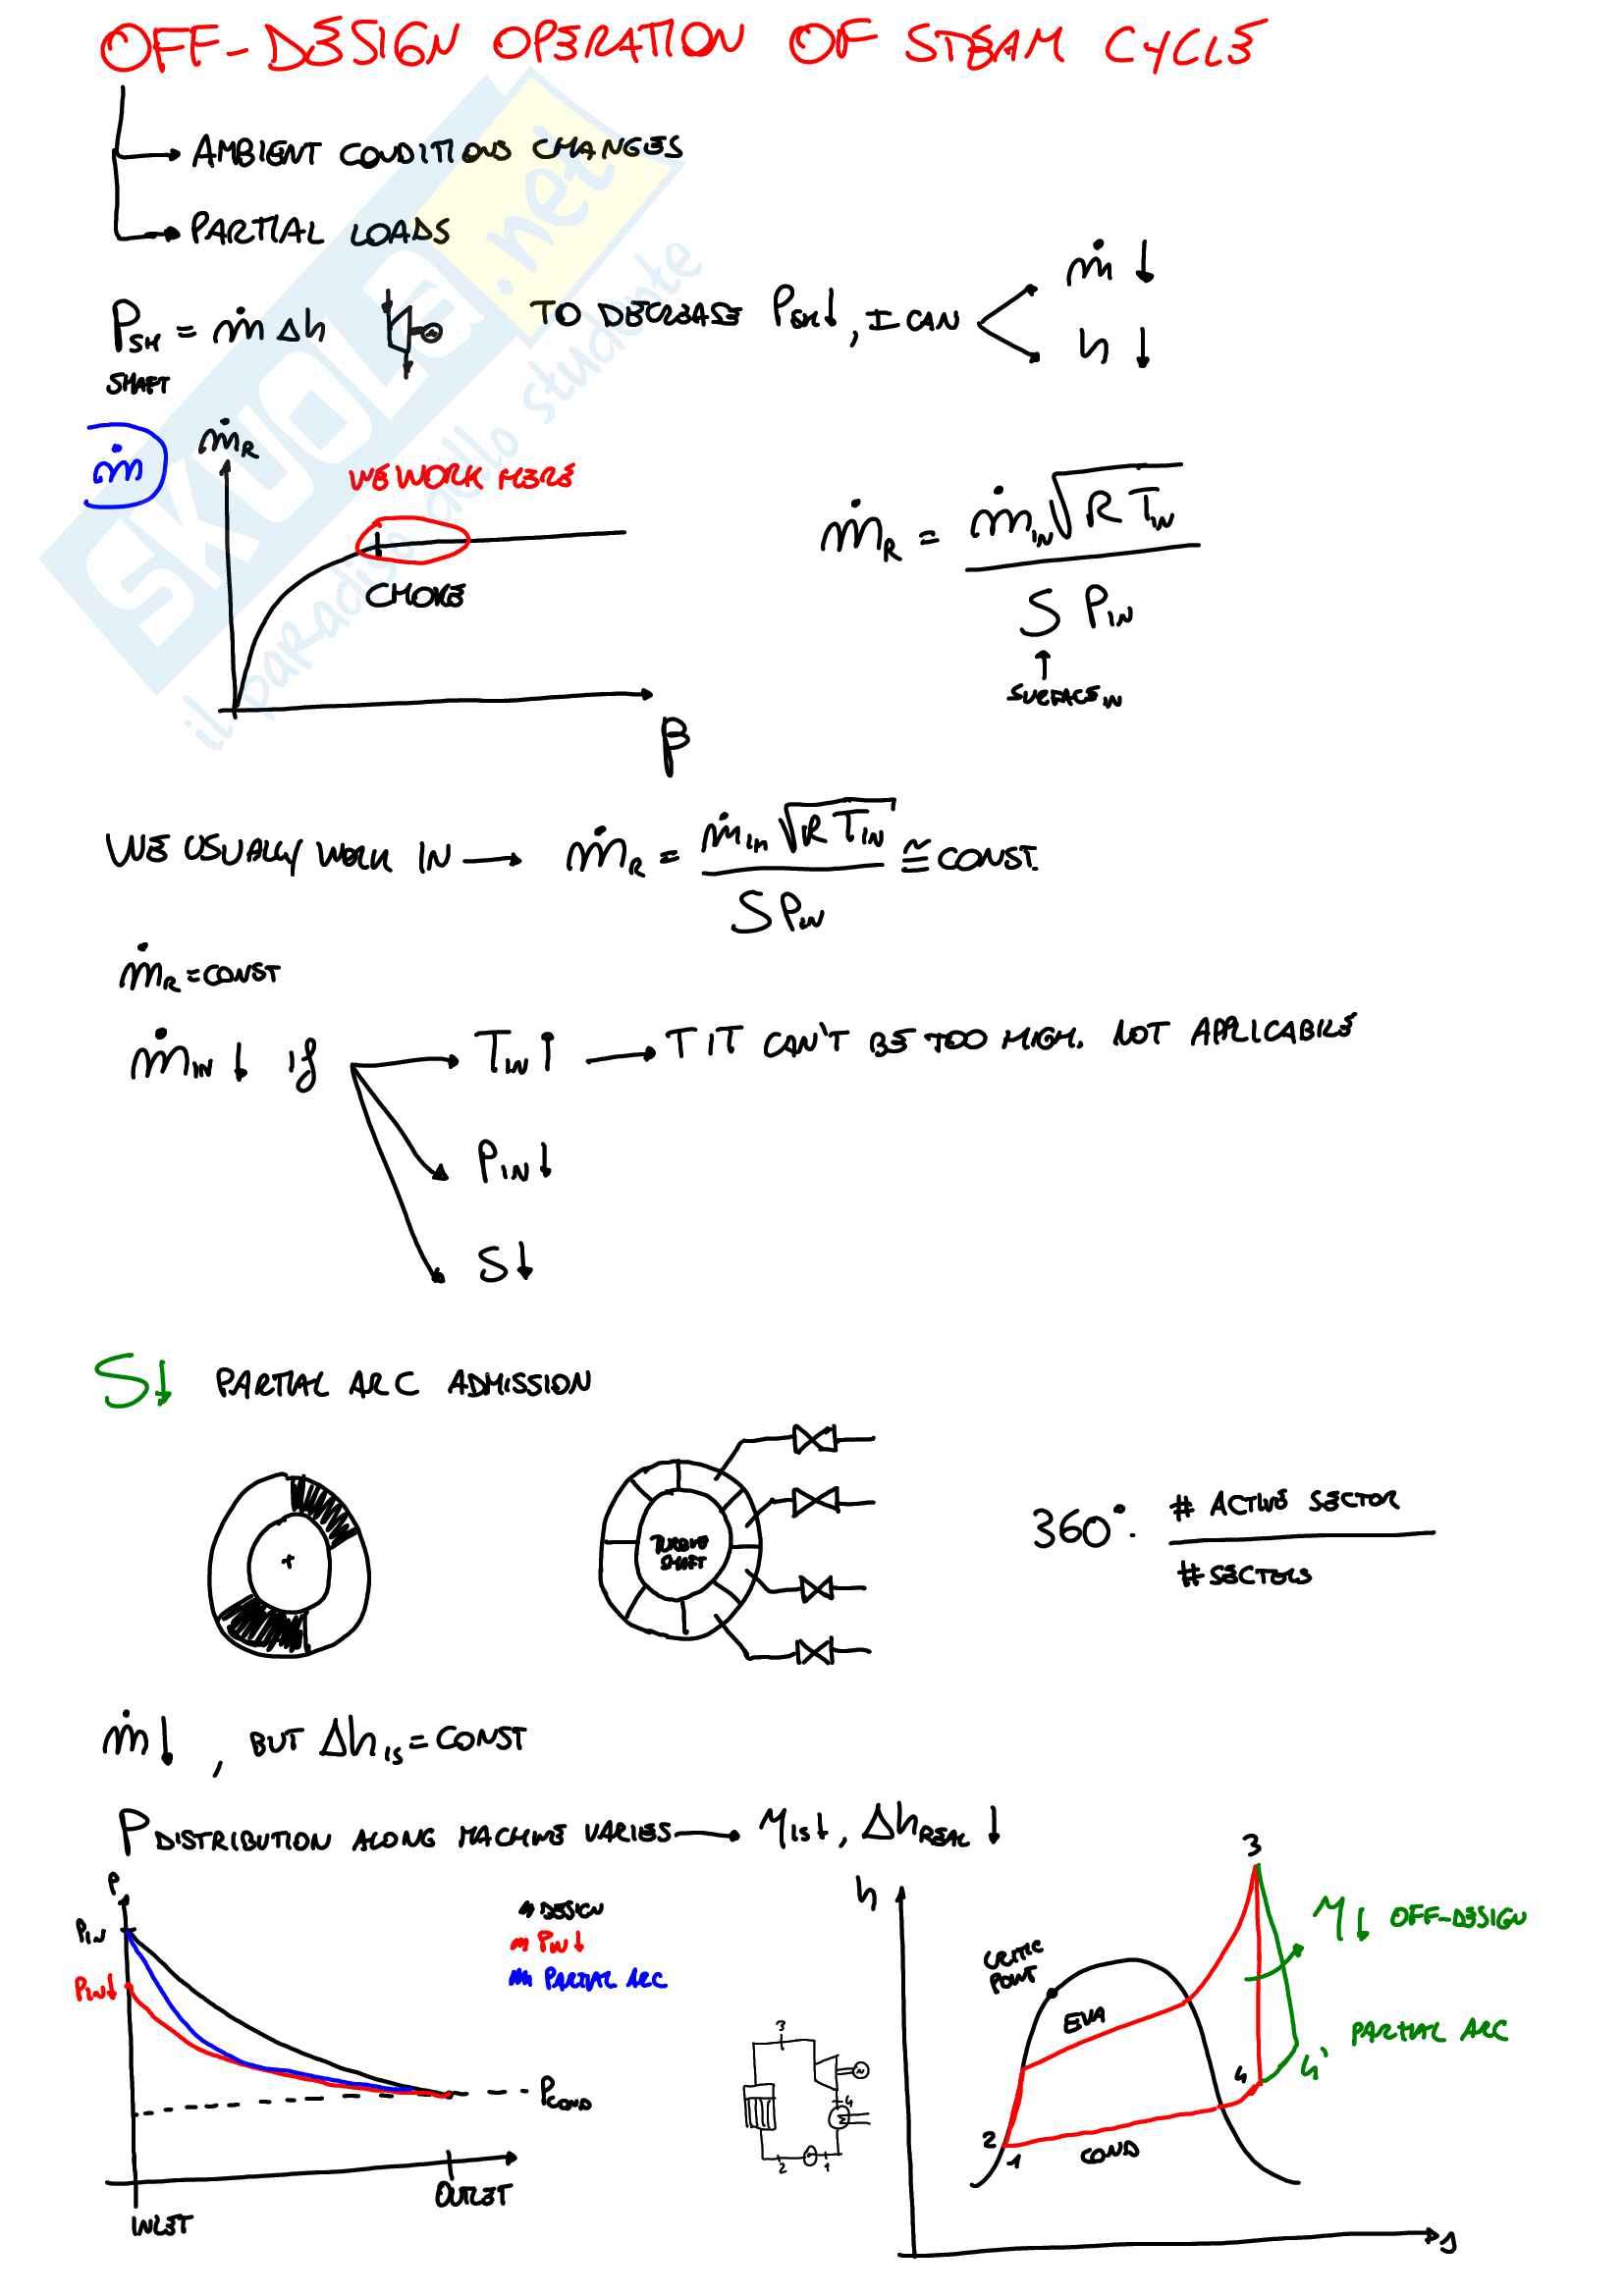 OFF-DESIGN OPERATION OF STEAM CYCLE
AMBIENT CONDITIONS CHANGES
PARTIAL LOADS
P_SH = ṁ Δh
SHAFT
TO DECREASE P_SH↓, I CAN
ṁ ↓
h ↓
ṁ
ṁ_R
WE WORK HERE
CHOKE
β
ṁ_R = ṁ_IN √(R T_IN) / (S P_IN)
SURFACE IN
WE USUALLY WORK IN → ṁ_R = ṁ_in √(R T_IN) / (S P_IN) ≅ CONST.
ṁ_R = CONST
ṁ_IN ↓ if
T_IN ↑ → TIT CAN'T BE TOO HIGH. NOT APPLICABILE
P_IN ↓
S ↓
S↓ PARTIAL ARC ADMISSION
TURBINE
SHAFT
360° · # ACTIVE SECTOR / # SECTORS
ṁ↓, BUT Δh_IS = CONST
P DISTRIBUTION ALONG MACHINE VARIES → η_IS↓, Δh_REAL ↓
P
P_IN
P_IN↓
DESIGN
P_IN ↓
PARTIAL ARC
P_COND
INLET
OUTLET
3
4
2
1
h
CRITIC
POINT
EVA
COND
3
η↓ OFF-DESIGN
PARTIAL ARC
4
4'
2
1
s
SKUOLA.net
il paradiso dello studente